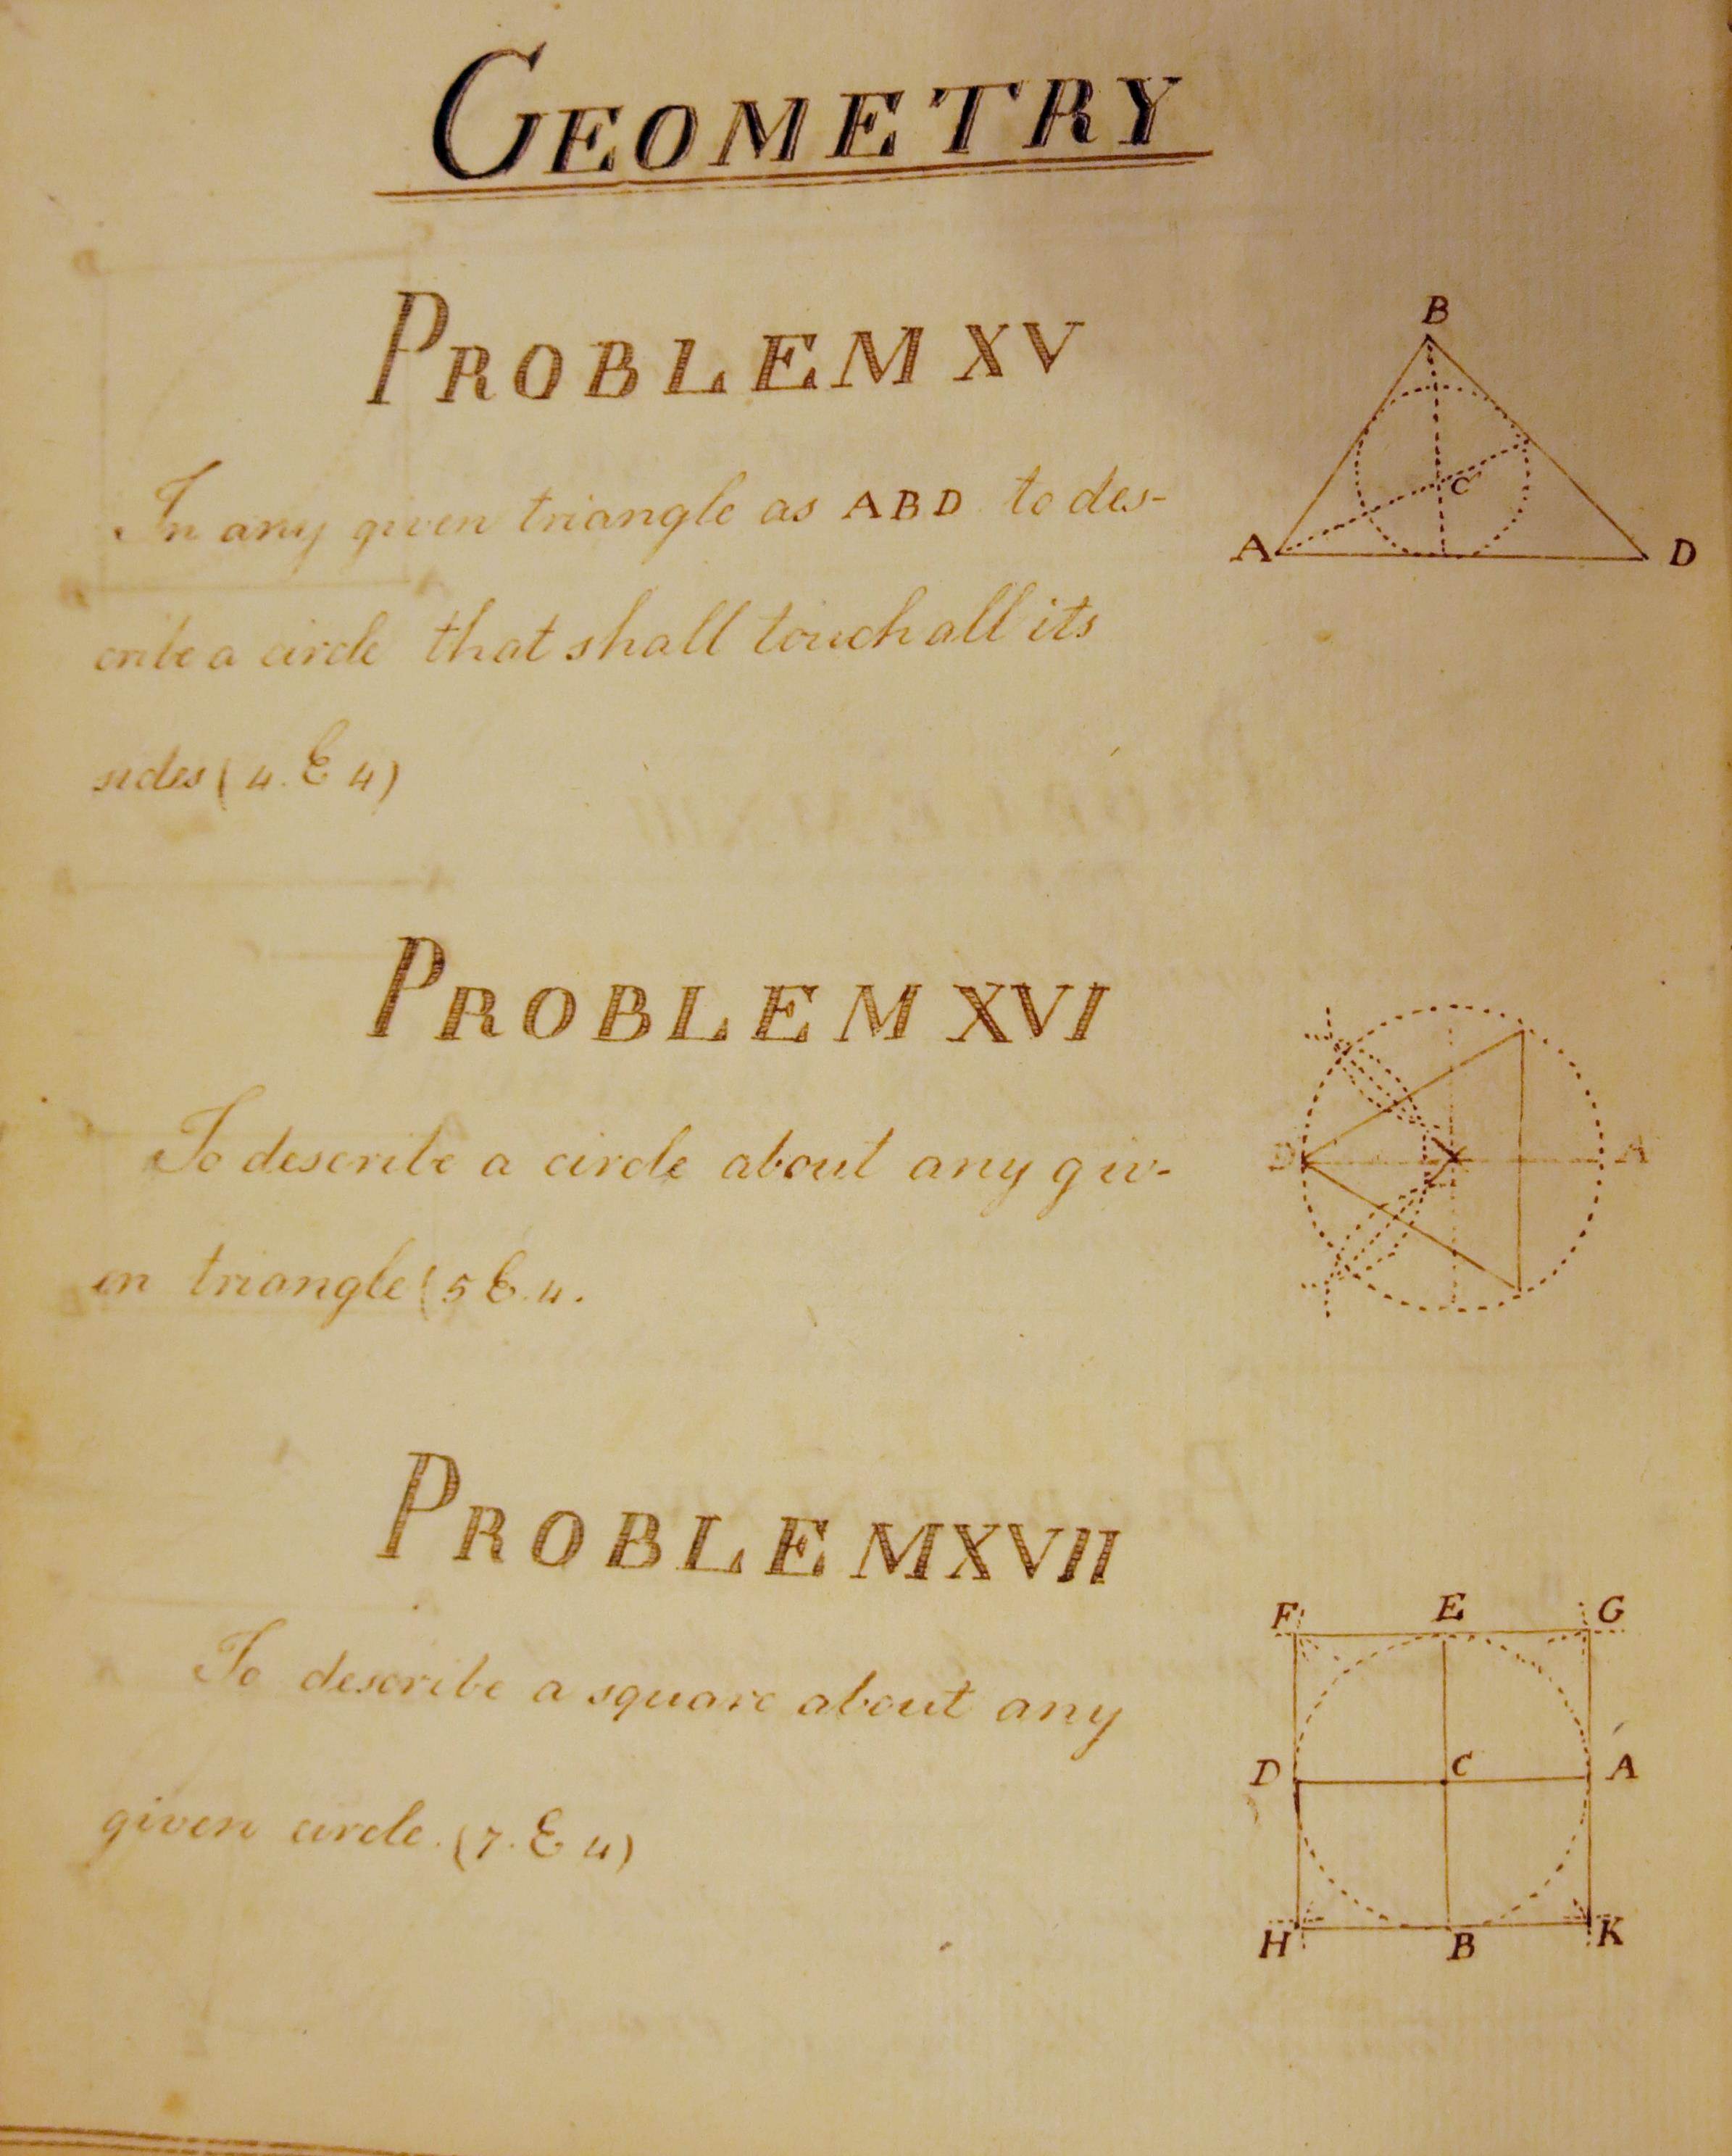 GEOMETRY
PROBLEM XV
In any given triangle as ABD to des-
cribe a circle that shall touch all its
sides (4. E 4)
B
C
A D
PROBLEM XVI
To describe a circle about any giv-
en triangle (5 E. 4.
D A
PROBLEM XVII
To describe a square about any
given circle. (7. E 4)
F E G
D C A
H B K